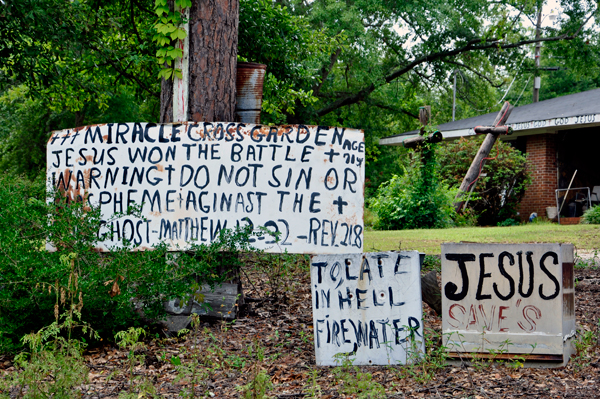 +++ MIRACLE CROSS GARDEN AGE
JESUS WON THE BATTLE +
WARNING + DO NOT SIN OR
SPHEME + AGINAST THE +
GHOST-MATTHEW 12-32-REV. 21.8
TO LATE
IN HELL
FIRE WATER
JESUS
SAVE'S